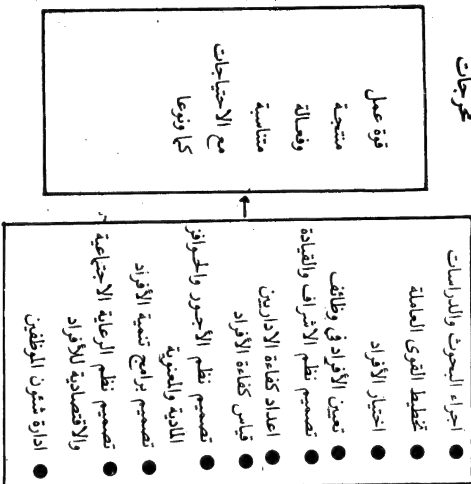 مخرجات
قوة عمل
منتجة
وفعالة
متناسبة
مع الاحتياجات
كما ونوعا
اجراء البحوث والدراسات
تخطيط القوى العاملة
اختيار الأفراد
تعيين الأفراد في وظائف
تصميم نظم الاشراف والقيادة
اعداد كفاءة الاداريين
قياس كفاءة الأفراد
تصميم نظم الأجور والحوافز
المادية والمعنوية
تصميم برامج تنمية الأفراد
تصميم نظم الرعاية الاجتماعية
والاقتصادية للأفراد
ادارة شئون الموظفين